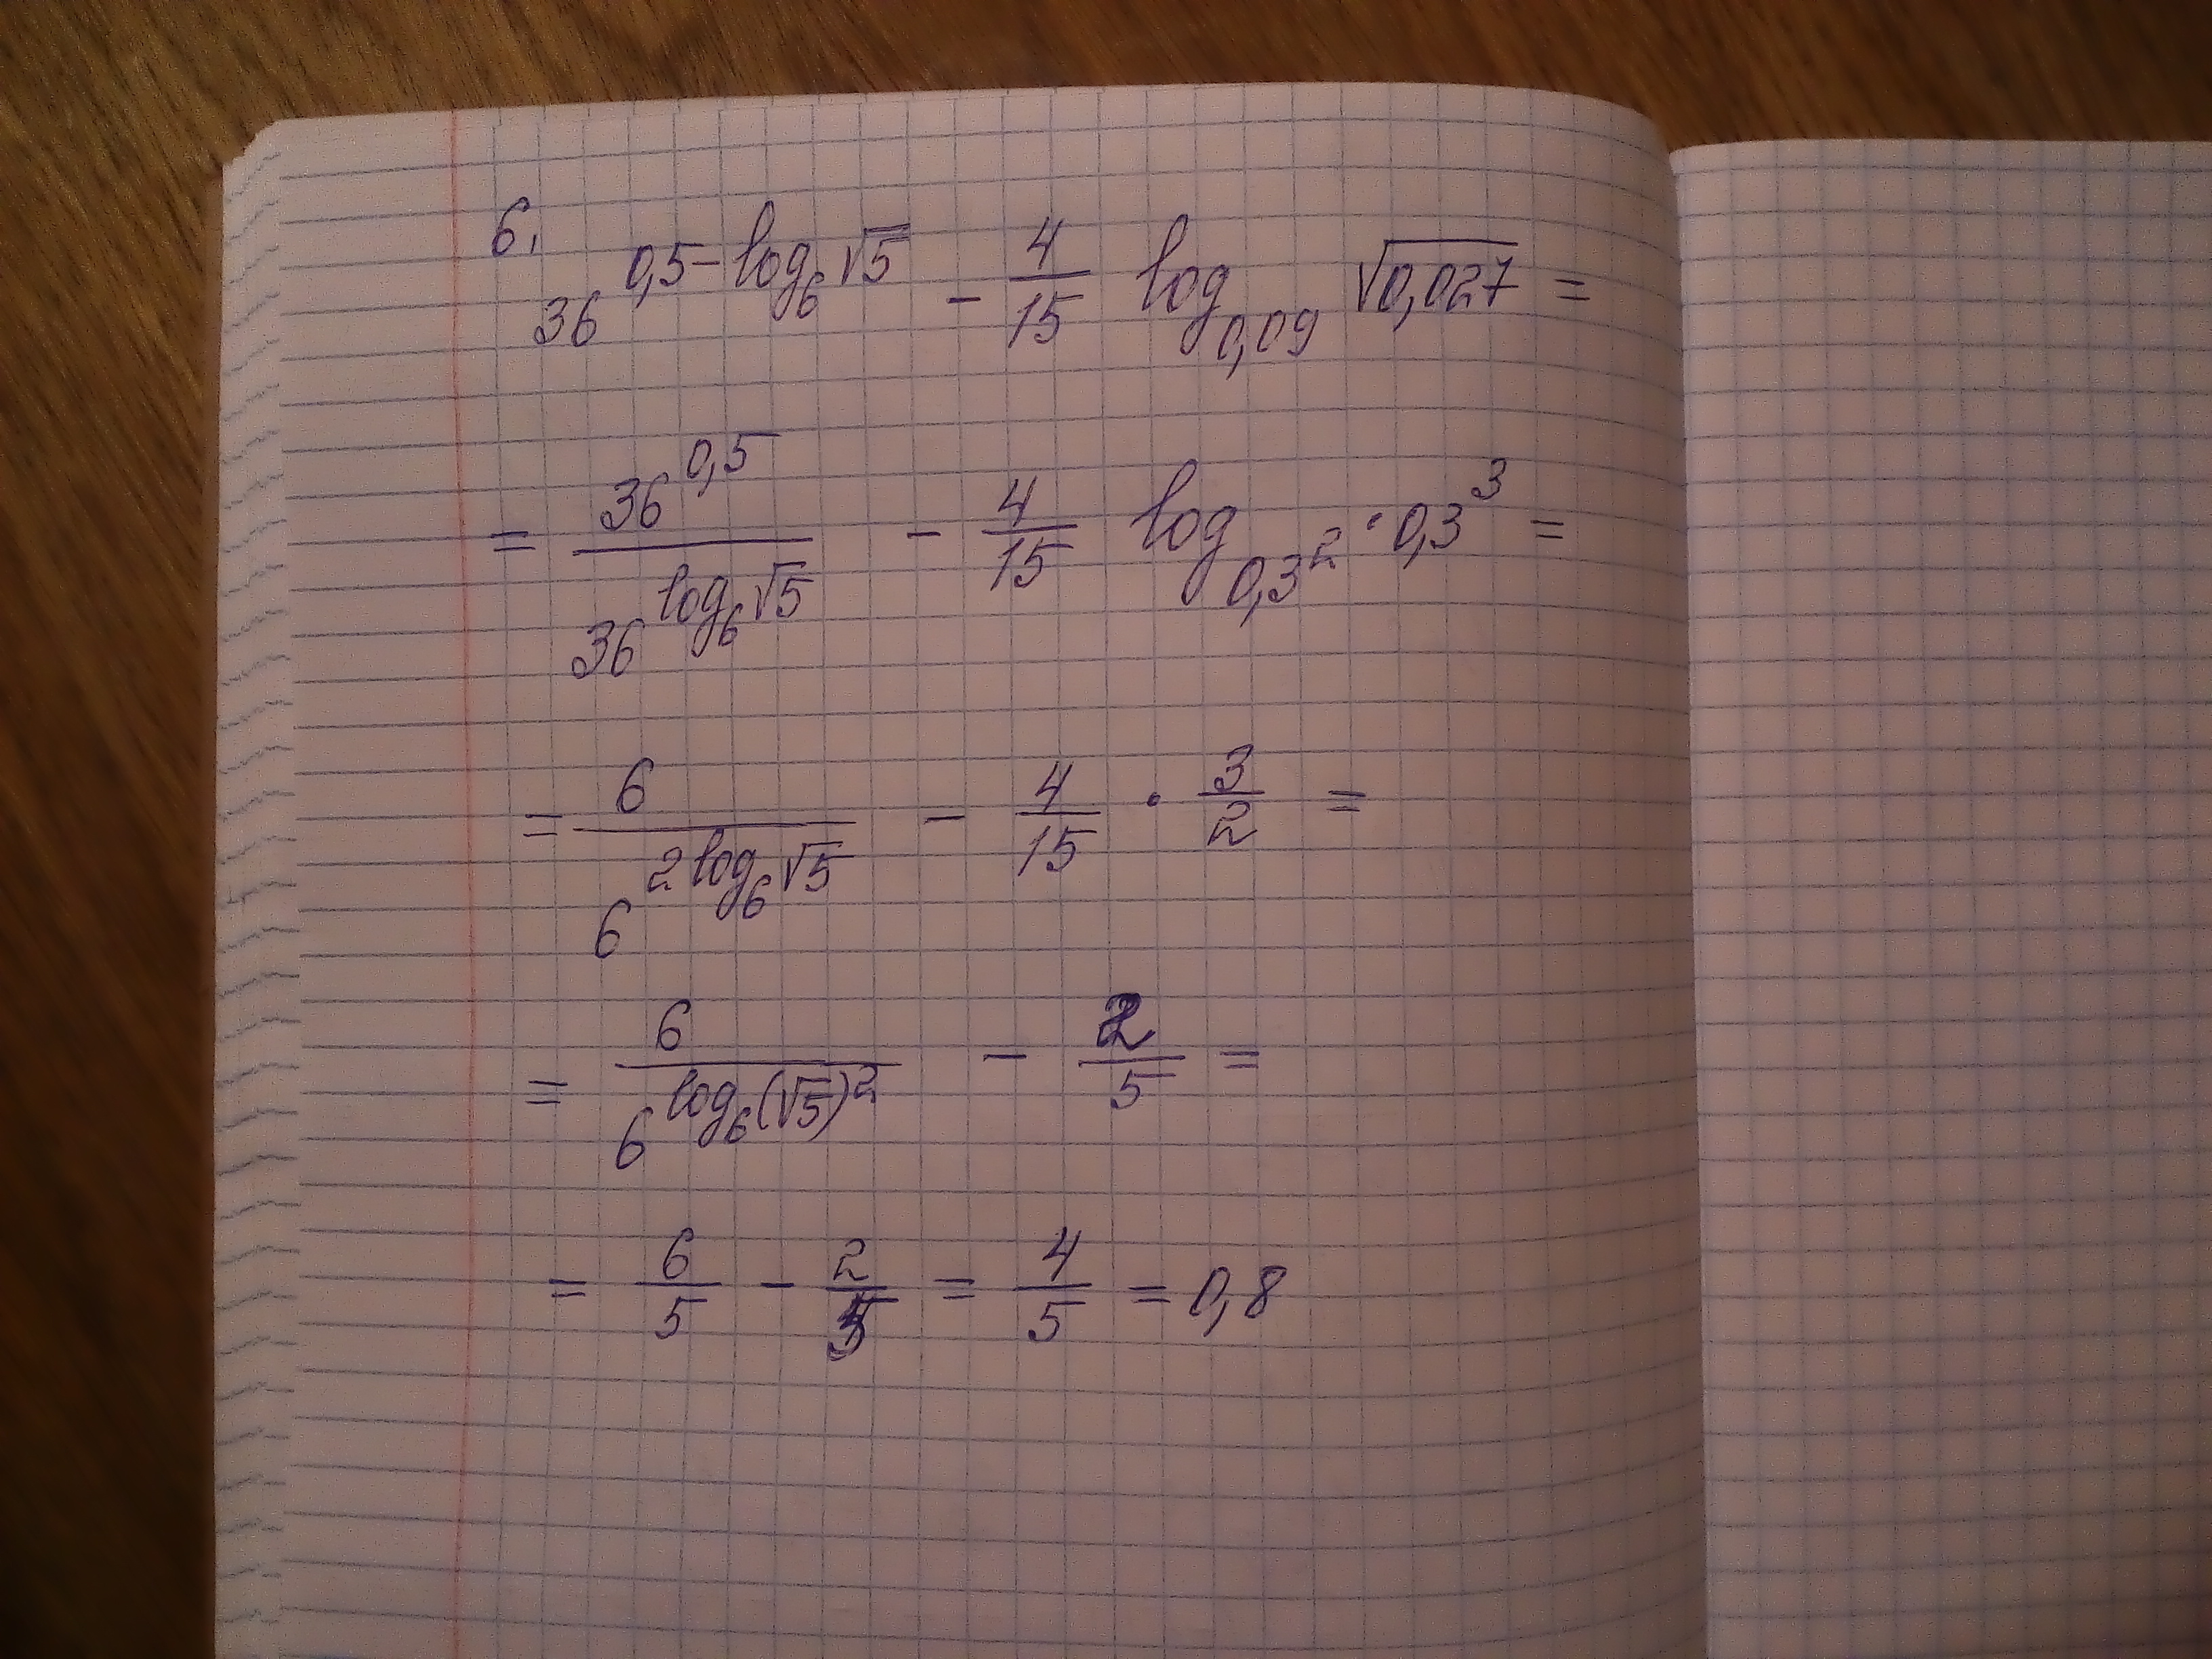 6.
36^{0,5-log_6 √5} - 4/15 log_{0,09} √0,027 =
= 36^{0,5} / 36^{log_6 √5} - 4/15 log_{0,3^2} · 0,3^3 =
= 6 / 6^{2 log_6 √5} - 4/15 · 3/2 =
= 6 / 6^{log_6 (√5)^2} - 2/5 =
= 6/5 - 2/5 = 4/5 = 0,8